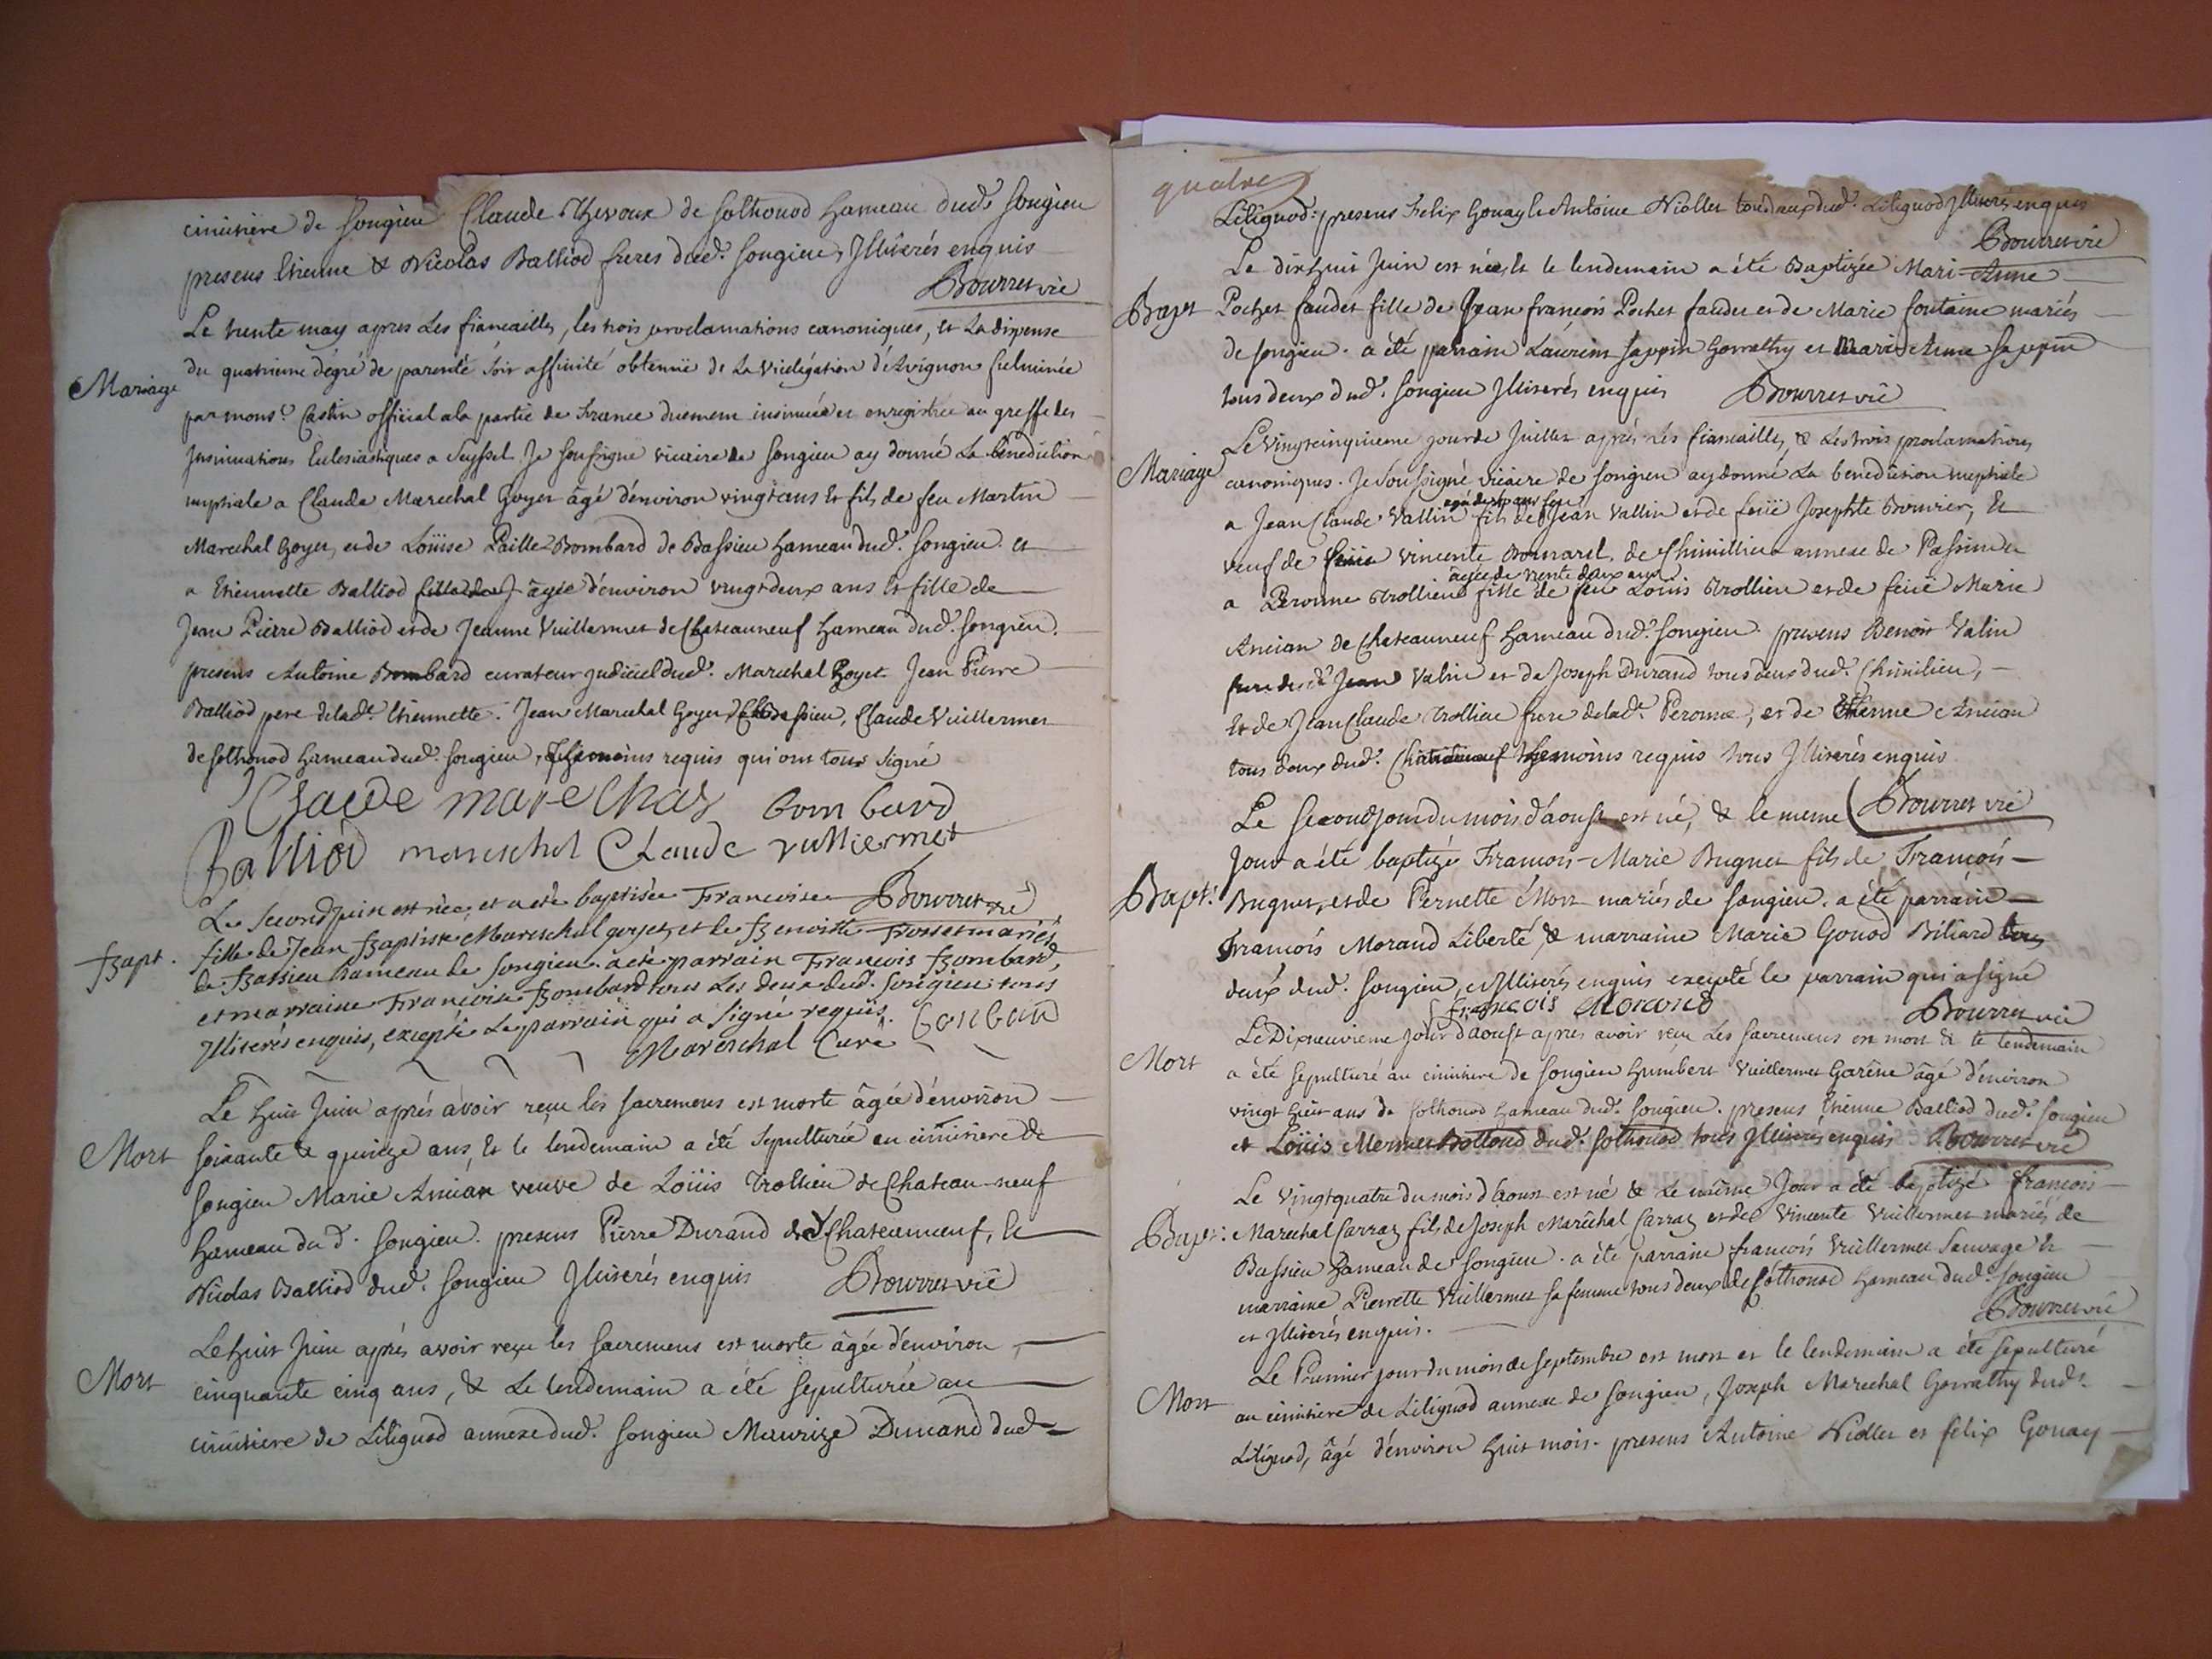 cimitiere de songieu Claude Thevoux de sothonod hameau dud.t songieu
presens Etienne & Nicolas Balliod freres dud.t songieu, Illiterés enquis
Bourret vic
Le trente may apres Les fiancailles, les trois proclamations canoniques, et La dispense
du quatrieme dégré de parenté soir affinité obtenuë de La Vicelégation d'Avignon fulminée
Mariage
par mons.r Castin official a la partie de France duement insinuée et enregistrée au greffe des
Insinuations Eclesiastiques a Seyssel Je soussigné vicaire de songieu ay donné La bénédiction
nuptiale a Claude Marechal Goyet âgé d'environ vingt ans Et fils de feu Martin
Marechal Goyet, et de Loüise Paillet Bombard de Bassieu hameau dud.t songieu et
a Etiennette Balliod fille de J âgée d'environ vingt deux ans Et fille de
Jean Pierre Balliod et de Jeanne Vuillermet de Chateauneuf hameau dud.t songieu.
presens Antoine Bombard curateur judiciel dud.t Marechal Goyet Jean Pierre
Balliod pere de lad.te Etiennette. Jean Marechal Goyet de Bassieu, Claude Vuillermet
de sothonod hameau dud.t songieu, themoins requis qui ont tous signé
Claude marechal bombard
Balliod mareschal Claude vulliermet
Bourret vic
Le second juin est née, et a eté baptisée Francoise
Bapt.
fille de Jean Baptiste Mareschal goyet, et de Benoitte Trosset mariés
de Bassieu hameau de songieu. a eté parrain Francois Bombard,
et marraine Francoise Bombard tous Les deux dud. songieu tous
Illiterés enquis, excepté Le parrain qui a signé requis. Bonbard
Mareschal Curé
Le huit Juin aprés avoir reçu les sacremens est morte âgée d'environ
Mort
soixante & quinze ans, Et le lendemain a été sepulturée au cimitiere de
songieu Marie Ancian veuve de Loüis Trollieu de Chateau-neuf
hameau du d.t songieu. presens Pierre Durand de Chateauneuf, Et
Nicolas Balliod dud.t songieu Illiterés enquis Bourret vic
Le huit Juin aprés avoir reçu les sacremens est morte âgée d'environ
Mort
cinquante cinq ans, & Le lendemain a été sepulturée au
cimitiere de Lilignod annexe dud.t songieu Maurize Dunand dud.t
quatre
Lilignod: presens Felix Gonay & Antoine Niollet tous deux dud.t Lilignod Illiterés enquis
Bourret vic
Le dix huit Juin est née, Et le lendemain a été Baptizée Mari-Anne
Bapt
Pochet faudet fille de Jean françois Pochet faudet et de Marie fontaine mariés
de songieu. a été parrain Laurent sappin Gorrathy et Marie Anne sappin
tous deux dud.t songieu Illiterés enquis Bourret vic
Le Vingt cinquieme jour de Juillet aprés Les fiancailles, & Les trois proclamations
Mariage
canoniques. Je soussigné vicaire de songieu ay donné La benediction nuptiale
agé de ans feu
a Jean Claude Vallin fils de Jean Vallin et de feuë Josephte Bouvier, Et
veuf de feüe Vincente Bonnard de Chimillieu annexe de Passin Et
âgée de trente deux ans
a Peronne Trollieu fille de feu Louis Trollieu et de feuë Marie
Ancian de Chateauneuf hameau dud.t songieu. presens Benoit Valin
frere dud.t Jean Valin et de Joseph Durand tous deux dud.t Chimilieu,
Et de Jean Claude Trollieu frere de lad.te Peronne, et de Etienne Ancian
tous deux dud.t Chateauneuf themoins requis tous Illiterés enquis
Bourret vic
Le second jour du mois d'aoust est né, & le meme
Jour a été baptizé Francois-Marie Bugnet fils de François
Bapt:
Bugnet, et de Pernette Mort mariés de songieu. a été parrain
François Morand Liberté, & marraine Marie Gonod Billiard tous
deux dud.t songieu, Illiterés enquis excepté le parrain qui a signé
françois Morand Bourret vic
Le Dixneuvieme jour d'aoust apres avoir reçu Les sacremens est mort & le lendemain
Mort
a été sepulturé au cimitiere de songieu humbert Vuillermet Garêne âgé d'environ
vingt huit ans de sothonod hameau dud.t songieu. presens Etienne Balliod dud.t songieu
et Loüis Mermet Bolloud dud.t sothonod tous Illiterés enquis Bourret vic
Le Vingtquatre du mois d'Aoust est né & Le même Jour a été baptizé françois
Bapt:
Marechal Carraz fils de Joseph Maréchal Carraz et de Vincente Vuillermet mariés de
Bassieu hameau de songieu. a été parrain francois Vuillermet Sauvage Et
marraine Pierrette Vuillermet sa femme tous deux de Sothonod hameau dud.t songieu
et Illiterés enquis. Bourret vic
Le Premier jour du mois de septembre est mort et le lendemain a été sepulturé
Mort
au cimitiere de Lilignod annexe de songieu, Joseph Marechal Gorrathy dud.t
Lilignod, âgé d'environ huit mois. presens Antoine Niollet et felix Gonay